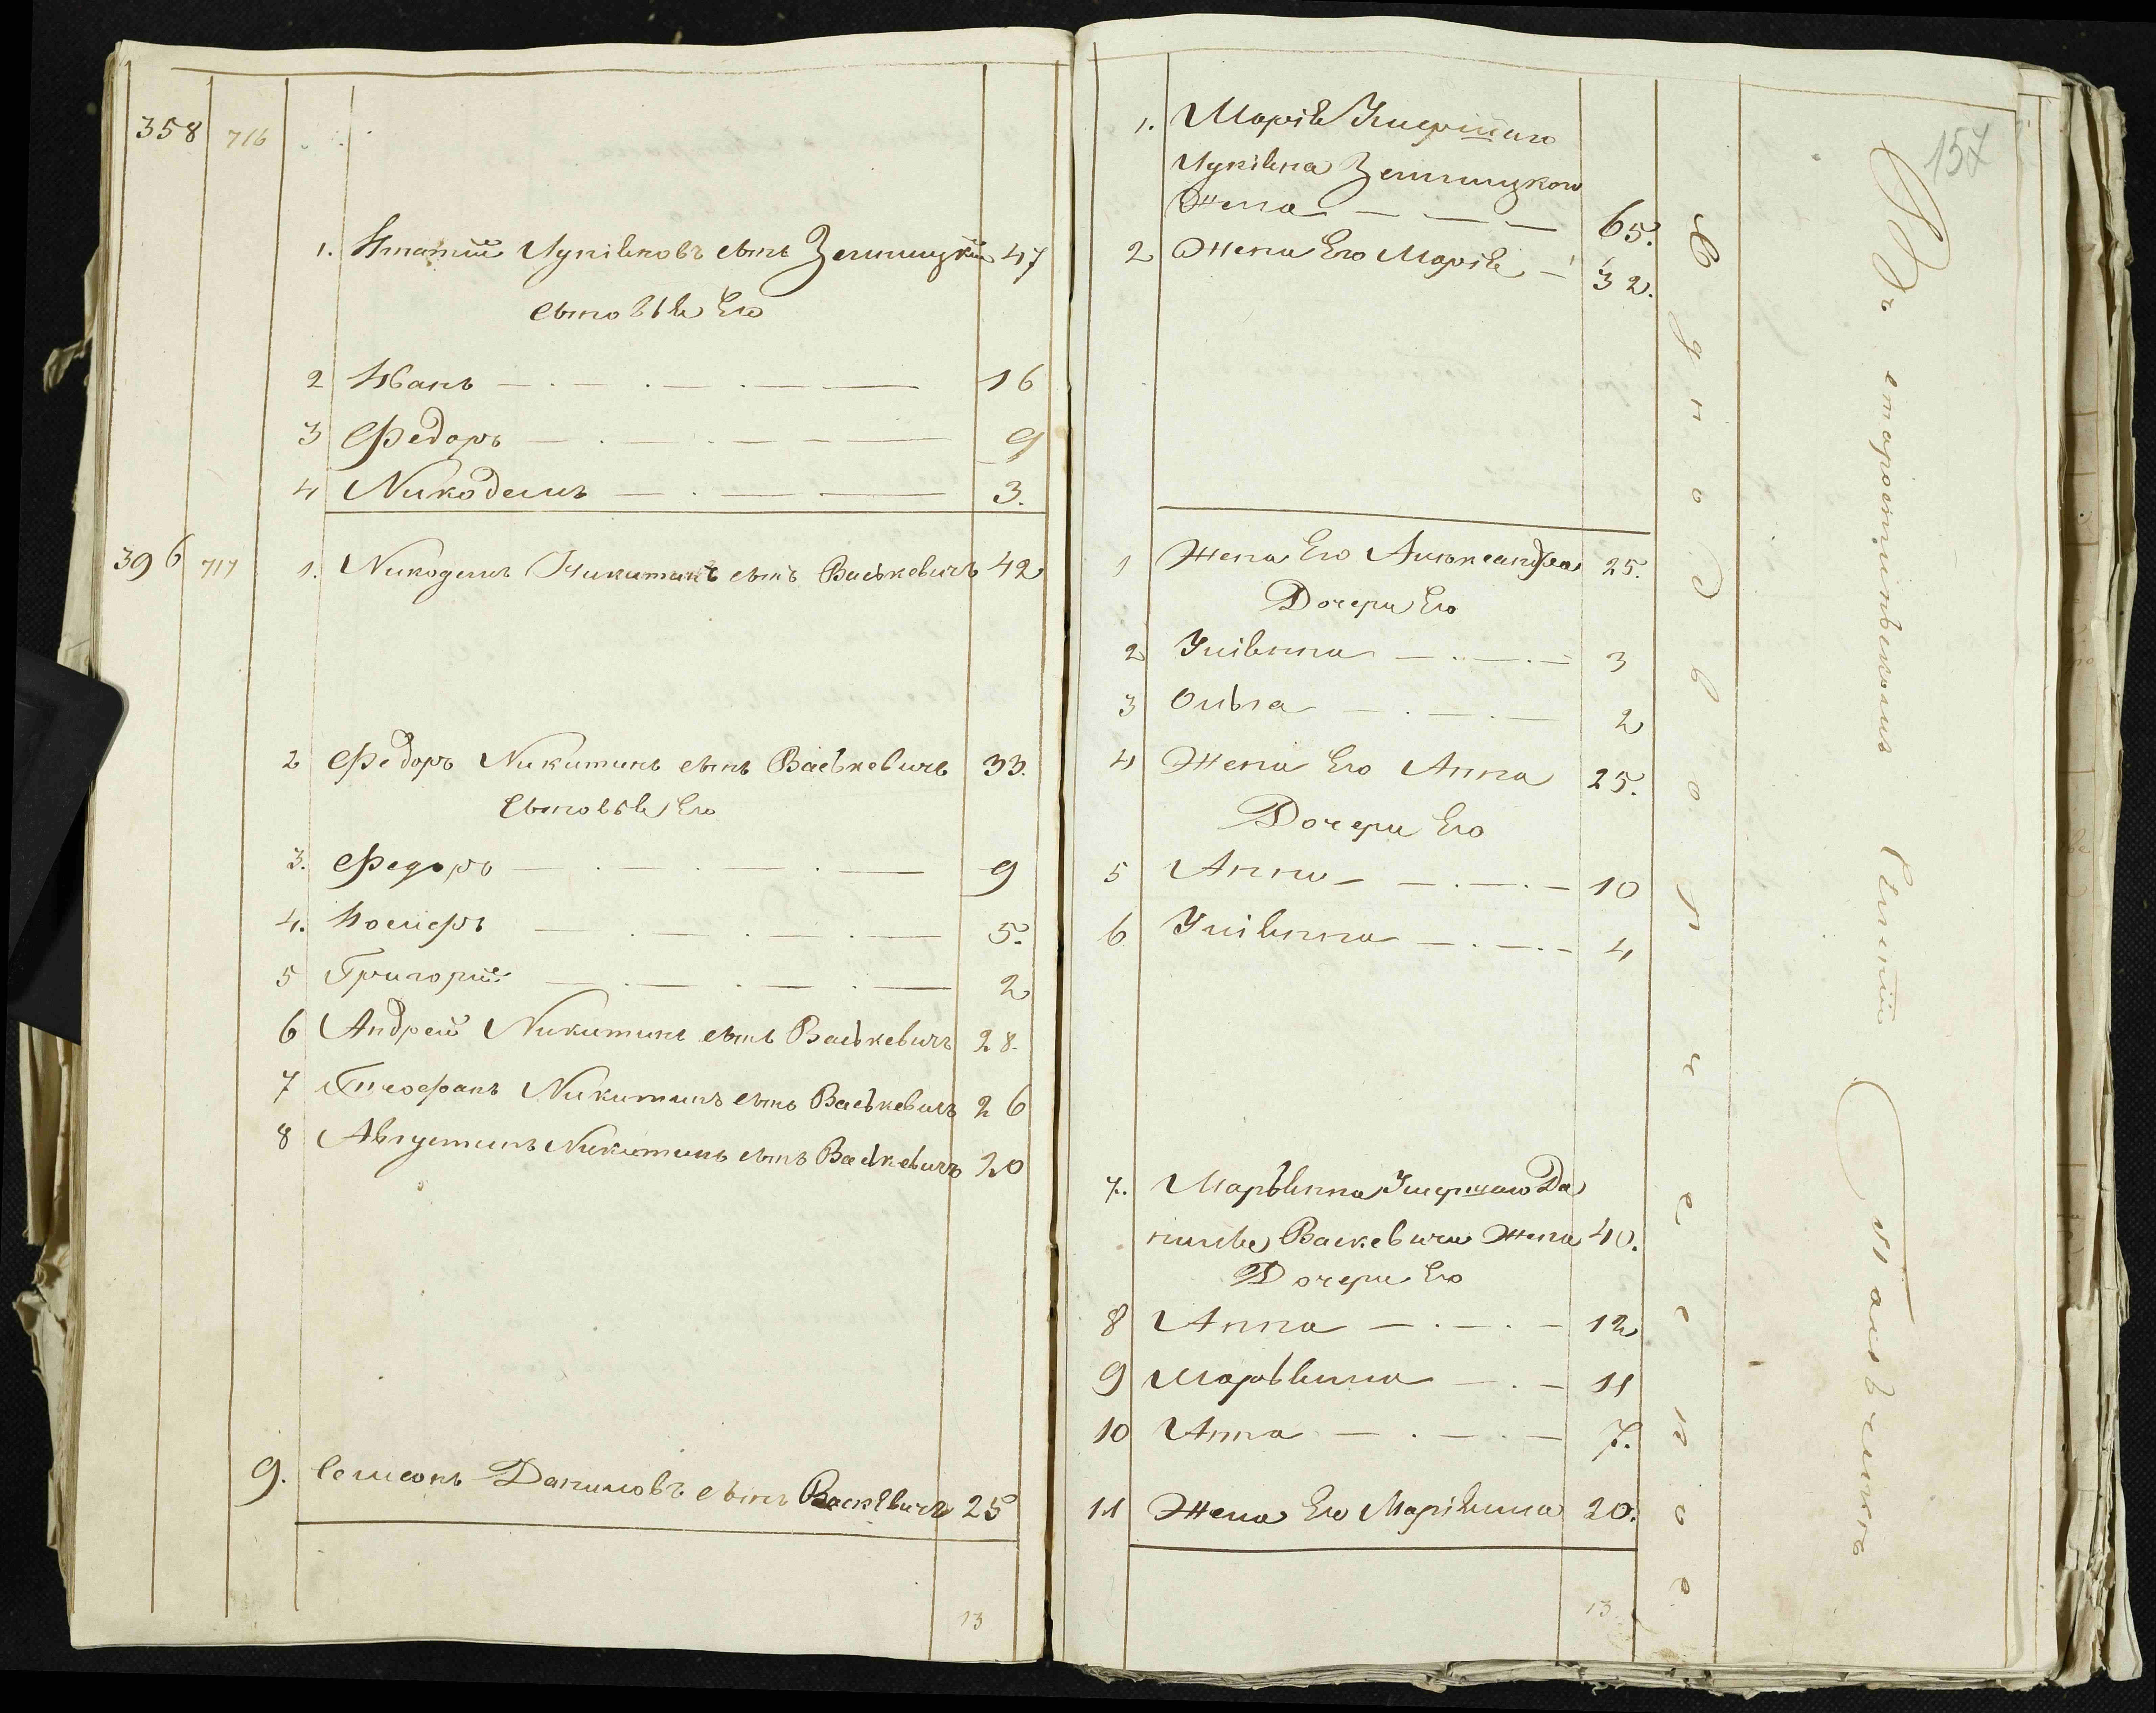 358 716
1. Игнатій Лукіяновъ сынъ Землицкій 47
сыновья Его
2 Иванъ — . — . — . — — 16
3 Федоръ — . — . — — — 9
4 Никодимъ — . — — 3.
396 717 1. Никодимъ Никитинъ сынъ Васькевичъ 42
2 Федоръ Никитинъ сынъ Васькевичъ 33.
Сыновья Его
3. Федоръ — . — . — . — 9
4. Іосифъ — . — . — . — 5.
5 Григорій — . — . — . — 2
6 Андрей Никитинъ сынъ Васькевичъ 28.
7 Никитинъ сынъ Васькевичъ 26
8 Августинъ Никитинъ сынъ Васькевичъ 20
9. Семіонъ Даниловъ сынъ Васкевичъ 25
13
157
1. Марія Умершаго
Лукіяна Землицкого
Жена — — — 65.
2 Жена Его Марія — 32.
1 Жена Его Алѣксандра 25.
Дочери Его
2 Уліянна — . — . — 3
3 Ольга — . — . — 2
4 Жена Его Анна 25.
Дочери Его
5 Анна — — . — . — 10
6 Уліянна — . — . — 4
7. Марьянна Умершаго Да
нила Васкевича Жена 40.
Дочери Его
8 Анна — . — . — 12
9 Марьянна — . — 11
10 Анна — . — . — 7.
11 Жена Его Маріянна 20.
13
Однодворческое
Въ старостинскомъ имѣніи